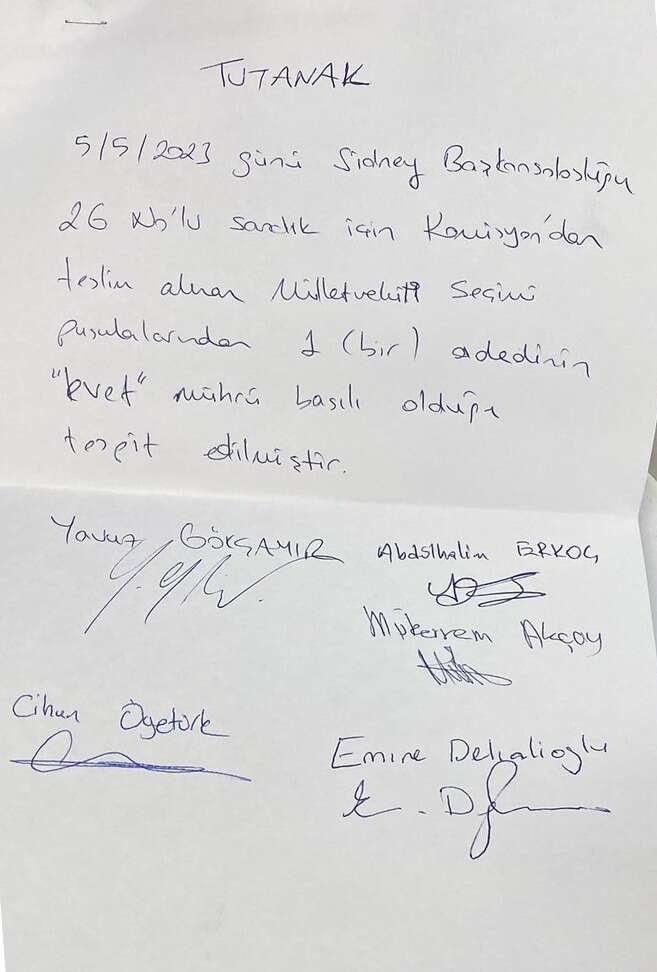 TUTANAK
5/5/2023 günü Sidney Başkonsolosluğu
26 No'lu sandık için Komisyon'dan
teslim alınan Milletvekili Seçimi
pusulalarından 1 (bir) adedinin
"Evet" mührü basılı olduğu
tespit edilmiştir.
Yavuz GÖKÇAYIR Abdulhalim ERKOÇ
Mükerrem Akçay
Cihan Ögetürk
Emine
E. D